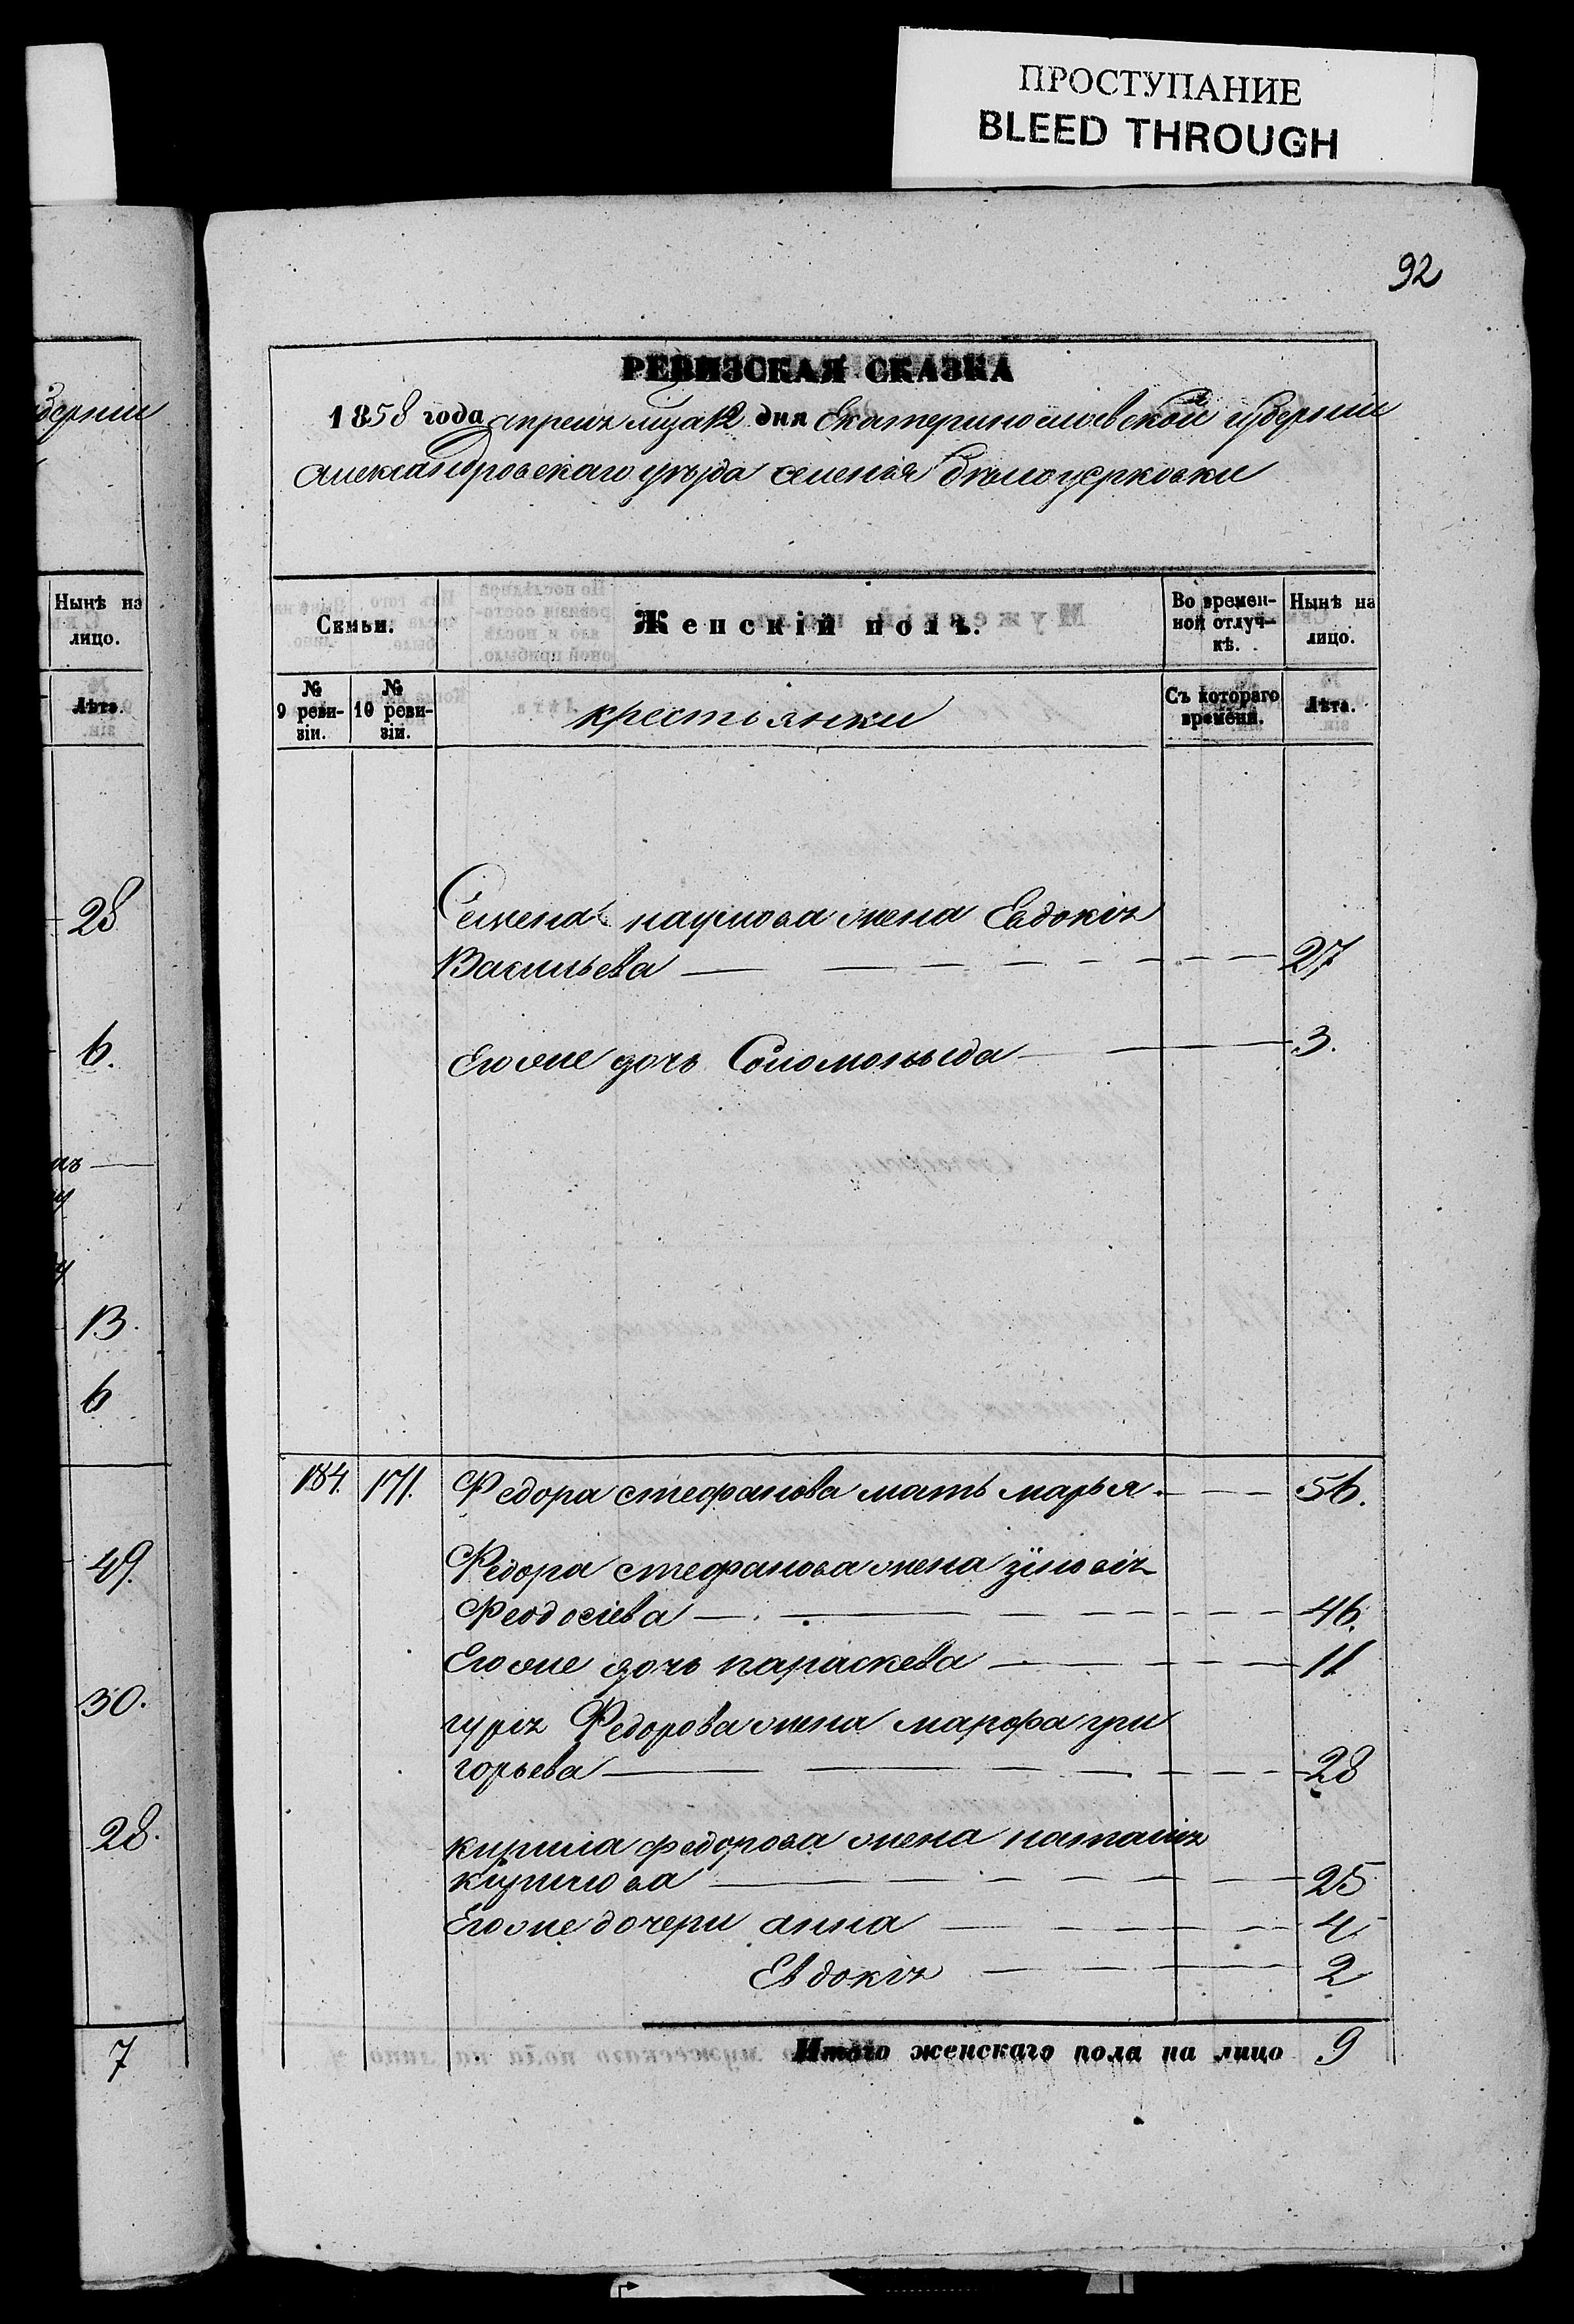 ПРОСТУПАНИЕ
BLEED THROUGH
92
РЕВИЗСКАЯ СКАЗКА
1858 года апреля мца 12 дня Екатеринославской губерніи
Александровскаго уѣзда селенія Бѣлоцерковки
Семьи.
Женскій полъ.
Во времен-
ной отлуч-
кѣ.
Нынѣ на
лицо.
№
9 реви-
зіи.
№
10 реви-
зіи.
крестьянки
Съ котораго
времени.
Лѣта.
Семена наумова жена Евдокія
Васильева 27
Его же дочь Соломонида 3.
184. 171. Федора стефанова мать марья 56.
Федора стефанова жена зіновія
Феодосіева 46.
Его же дочь параскева 11
гурія Федорова жена марфа гри
горьева 28
кирила федорова жена наталія
кирилова 25
Его же дочери анна 4
Евдокія 2
Итого женскаго пола на лицо 9
губерніи
Нынѣ на
лицо.
Лѣта.
28
6.
13.
6
49.
30.
28.
7